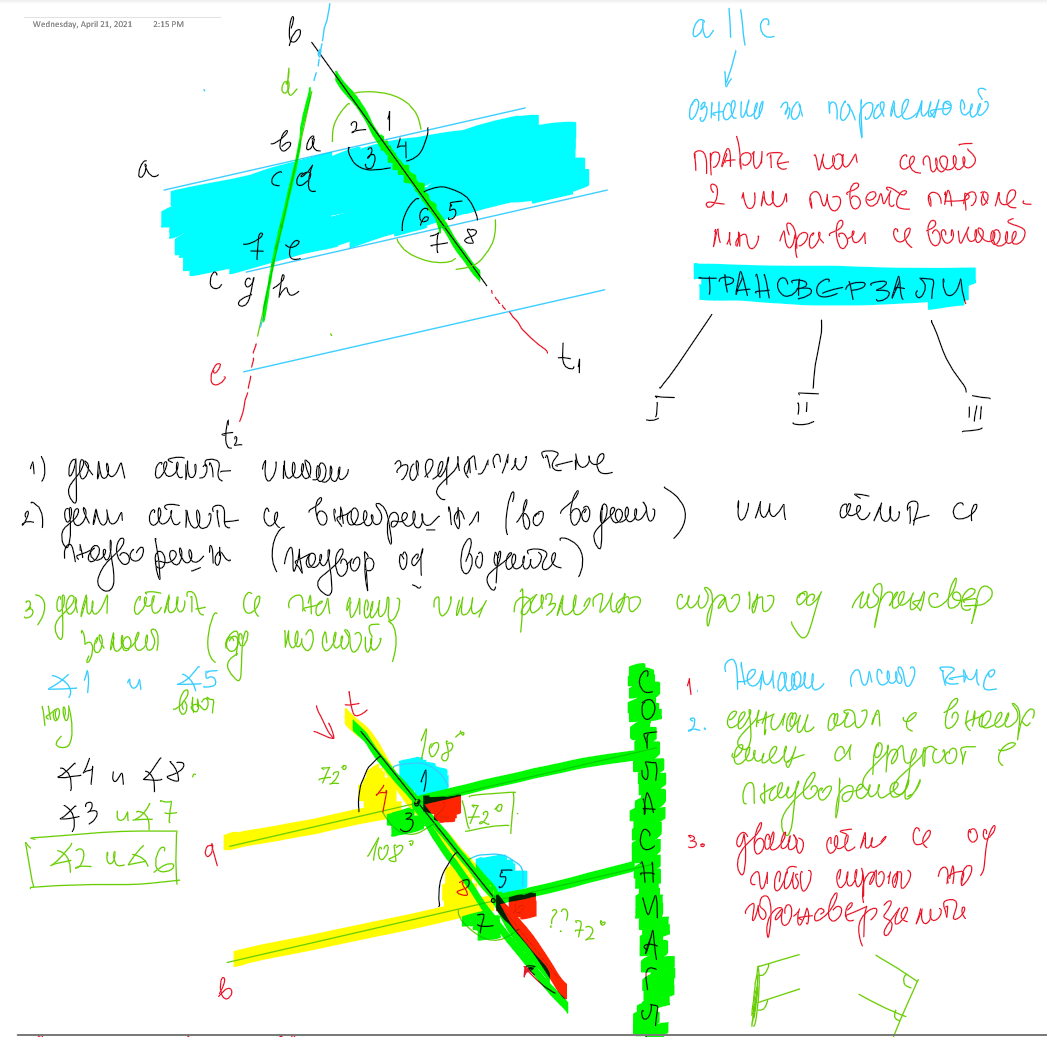 Wednesday, April 21, 2021 2:15 PM
b
d
2 1
b a
3 4
a
c d
6 5
f e
7 8
c g h
e
t₁
t₂
a || c
ознака за паралелност
правите кои сечат
2 или повеќе парале-
лни прави се викаат
ТРАНСВЕРЗАЛИ
I II III
1) дали аглите имаат заедничко теме
2) дали аглите се внатрешни (во водата) или аглите се
надворешни (надвор од водата)
3) дали аглите се на иста или различна страна од трансвер
залата (од мостот)
∡1 и ∡5
над внат
∡4 и ∡8.
∡3 и ∡7
∡2 и ∡6
t
108°
72° 1
4
3 72°
a 108°
5
8
7 ?? 72°
b
СОГЛАСНИ АГЛ
1. Немаат исто теме
2. едниот агол е внатр
ешен а другиот е
надворешен
3. двата агли се од
иста страна на
трансверзалата